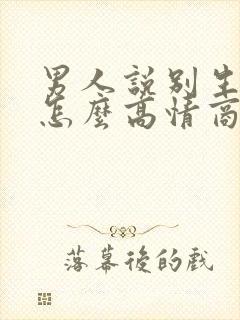 男人說別生
怎麼高情商
落幕後的戲